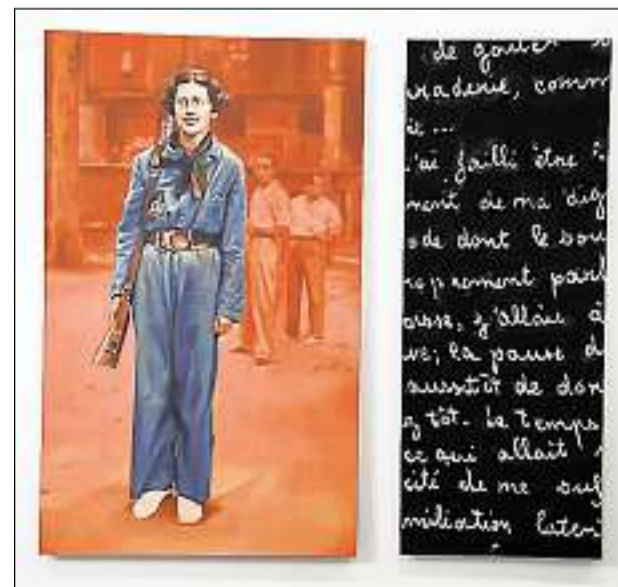 de goûter
comm
...
'ai failli être
ment de ma dig
de dont le sou
prement parl
, j'allais à
; la pause d
aussitôt de don
tôt. Le temps
ce qui allait
cité de me
miliation laten